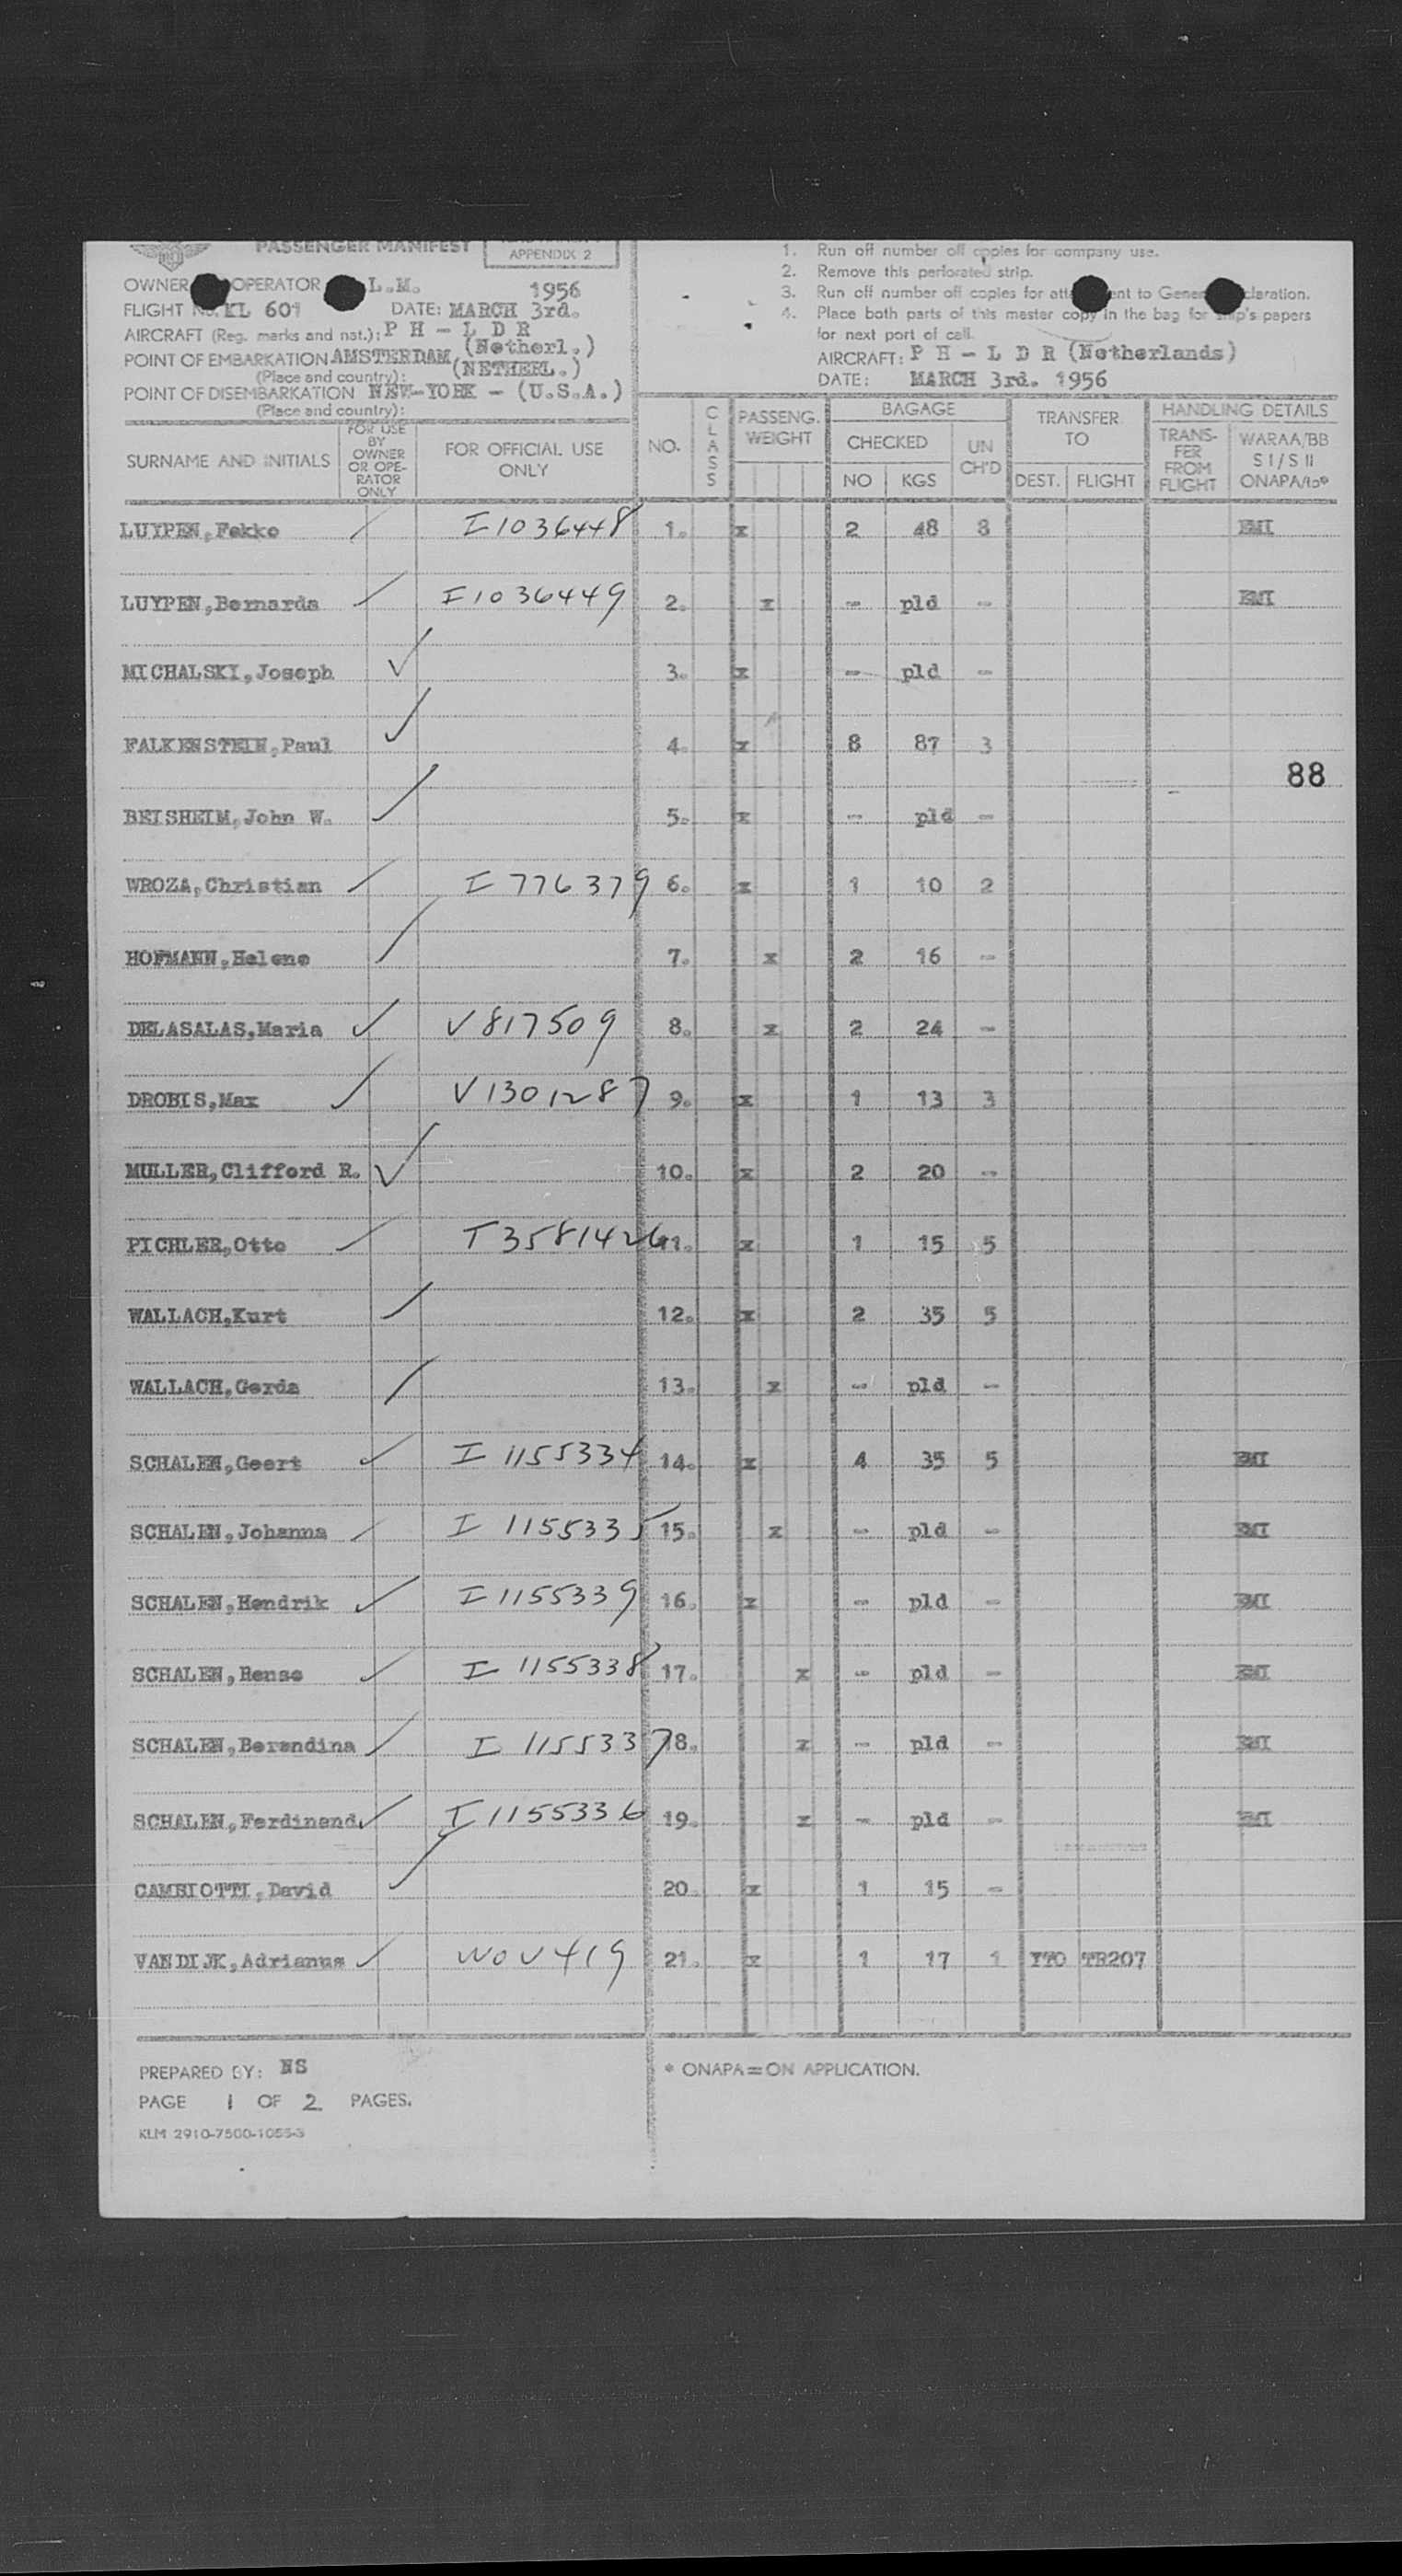 PASSENGER MANIFEST
APPENDIX 2
OWNER OPERATOR L.M. 1956
FLIGHT No. KL 601 DATE: MARCH 3rd.
AIRCRAFT (Reg. marks and nat.): P H - L D R (Netherl.)
POINT OF EMBARKATION AMSTERDAM, (NETHERL.)
(Place and country):
POINT OF DISEMBARKATION NEW-YORK - (U.S.A.)
(Place and country):
1. Run off number off copies for company use.
2. Remove this perforated strip.
3. Run off number off copies for att ent to Gener claration.
4. Place both parts of this master copy in the bag for ship's papers
for next port of call.
AIRCRAFT: P H - L D R (Netherlands)
DATE: MARCH 3rd. 1956
SURNAME AND INITIALS FOR USE BY OWNER OR OPE- RATOR ONLY FOR OFFICIAL USE ONLY NO. CLASS PASSENG. WEIGHT BAGAGE CHECKED NO KGS UN CH'D TRANSFER TO DEST. FLIGHT HANDLING DETAILS TRANS- FER FROM FLIGHT WARAA/BB S I/S II ONAPA/to*
LUYPEN, Fekko I 1036448 1. x 2 48 8 EMI
LUYPEN, Bernarda I 1036449 2. x - pld - EMI
MICHALSKI, Joseph 3. x - pld -
FALKENSTEIN, Paul 4. x 8 87 3
88
BEISHEIM, John W. 5. x - pld -
WROZA, Christian I 776379 6. x 1 10 2
HOFMANN, Helene 7. x 2 16 -
DELASALAS, Maria V 817509 8. x 2 24 -
DROBIS, Max V 1301287 9. x 1 13 3
MULLER, Clifford R. 10. x 2 20 -
PICHLER, Otto T 3581426 11. x 1 15 5
WALLACH, Kurt 12. x 2 35 5
WALLACH, Gerda 13. x - pld -
SCHALEN, Geert I 1155334 14. x 4 35 5 EMI
SCHALEN, Johanna I 1155335 15. x - pld - EMI
SCHALEN, Hendrik I 1155339 16. x - pld - EMI
SCHALEN, Rense I 1155338 17. x - pld - EMI
SCHALEN, Berendina I 1155337 18. x - pld - EMI
SCHALEN, Ferdinand. I 1155336 19. x - pld - EMI
CAMBIOTTI, David 20. x 1 15 -
VAN DIJK, Adrianus WOV 419 21. x 1 17 1 YTO TR207
PREPARED BY: NS
* ONAPA=ON APPLICATION.
PAGE 1 OF 2 PAGES.
KLM 2910-7500-1055-3